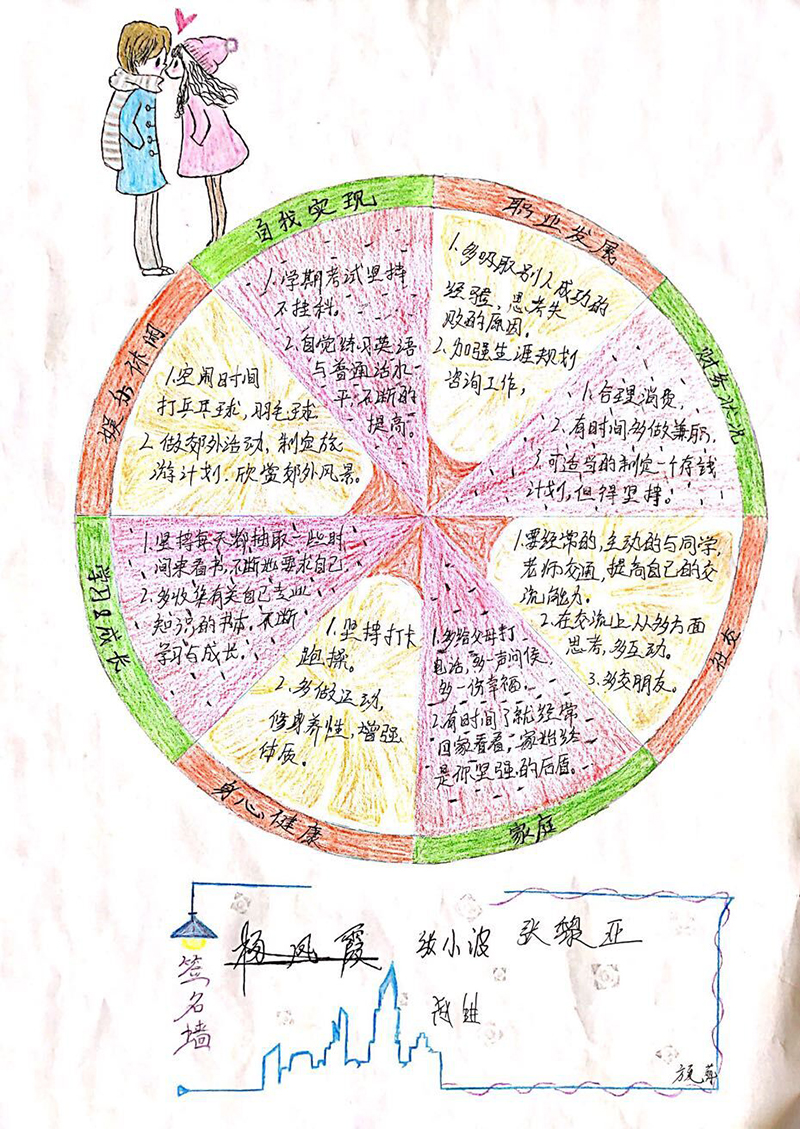 自我实现
1.学期考试坚持
不挂科。
2.自觉练习英语
与普通话水
平,不断的
提高。
职业发展
1.多吸取别人成功的
经验,思考失
败的原因。
2.加强生涯规划
咨询工作,
财务状况
1.合理消费,
2.有时间多做兼职,
3.可适当的制定一个存钱
计划,但得坚持。
社交
1.要经常的,主动的与同学,
老师交通,提高自己的交
流能力。
2.在交流上从多方面
思考,多互动。
3.多交朋友。
家庭
1.多给父母打
电话,多一声问侯,
多一份幸福。
2.有时间了就经常
回家看看,家始终
是你坚强的后盾。
身心健康
1.坚持打卡
跑操。
2.多做运动,
修身养性,增强
体质。
成长
1.坚持每天都抽取一些时
间来看书,不断地要求自己
2.多收集有关自己专业
知识的书本,不断
学习与成长。
娱乐休闲
1.空闲时间
打乒乓球,羽毛球.
2.做郊外活动,制定旅
游计划.欣赏郊外风景。
签名墙
杨凤霞
张小波
张黎亚